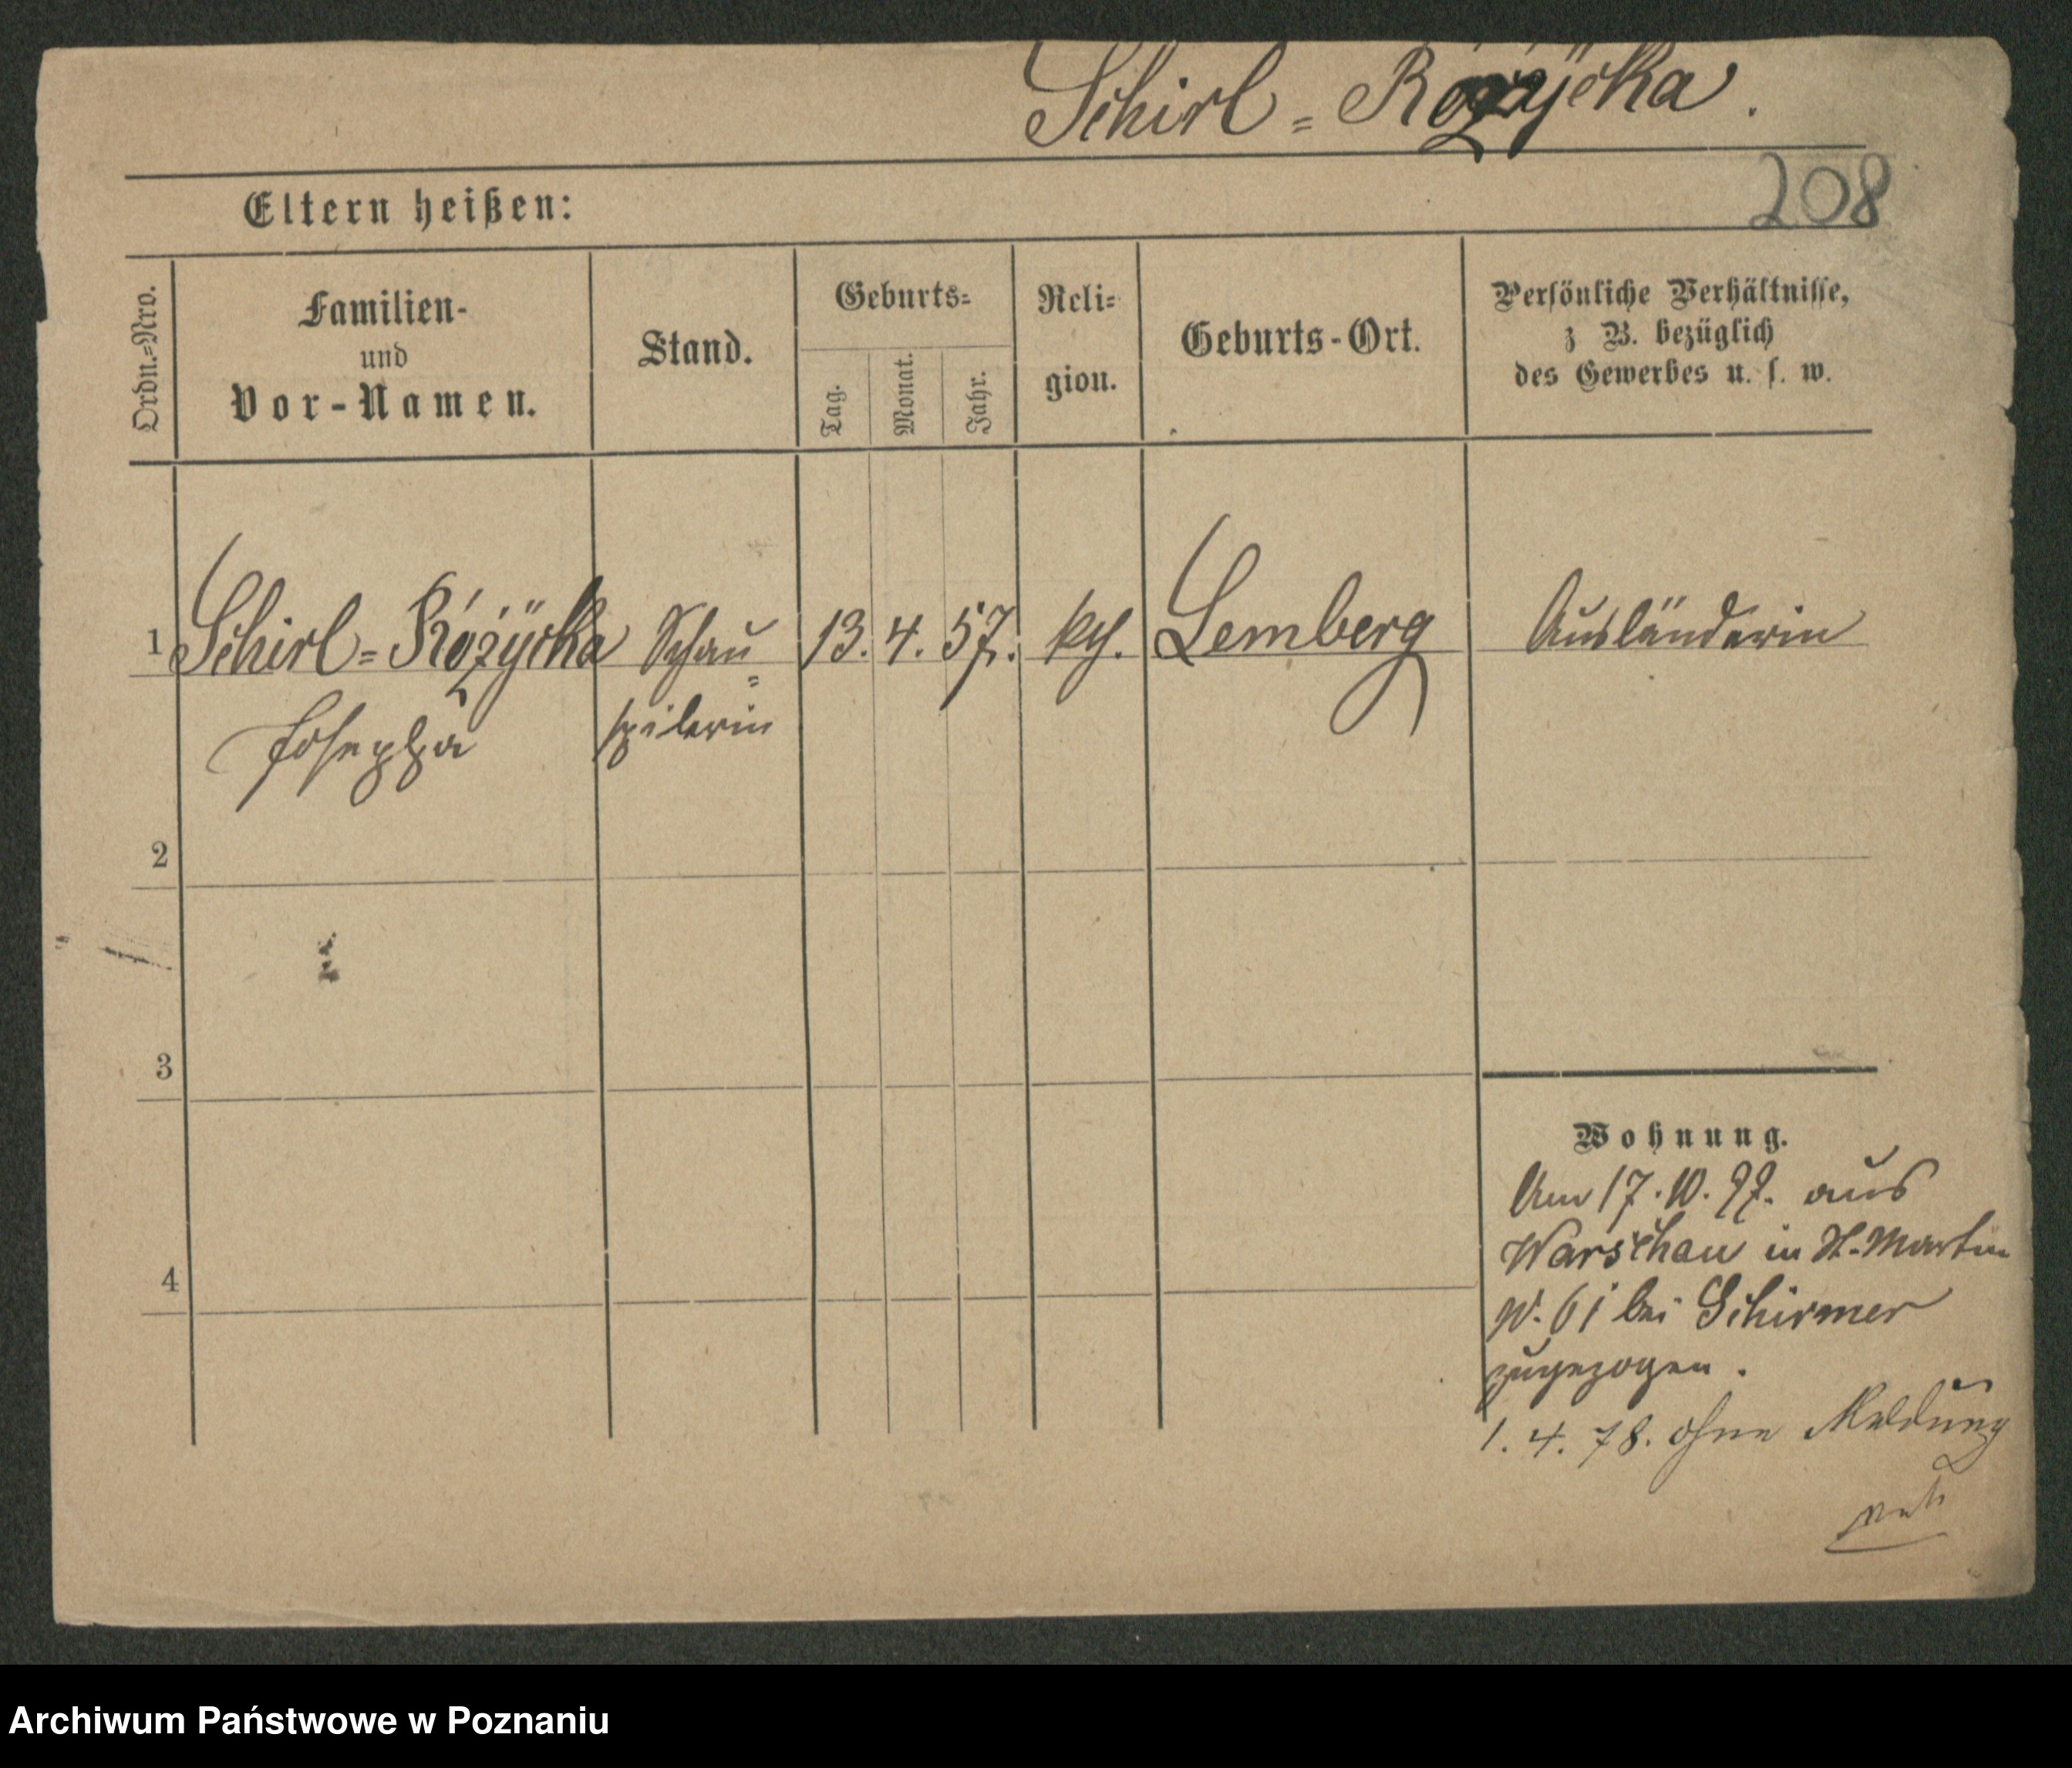 Schirl = Różÿcka.
208
Eltern heißen:
Ordn.=Nro.
Familien-
und
Vor-Namen.
Stand.
Geburts=
Tag.
Monat.
Jahr.
Reli=
gion.
Geburts-Ort.
Persönliche Verhältnisse,
z B. bezüglich
des Gewerbes u. s. w.
1 Schirl = Różÿcka Schau= 13. 4. 57. kth. Lemberg Ausländerin
Josepha spilerin
2
3
4
Wohnung.
Am 17. 10. 77. aus
Warschau in St. Martin
No. 61 bei Schirmer
zugezogen.
1. 4. 78. ohne Meldung